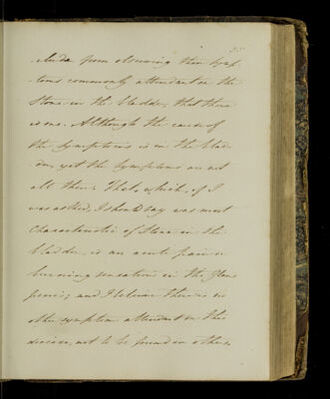 25
clude from observing those symp-
toms commonly attendant on the
Stone in the bladder, that there
is one. Although the cause of
the symptoms is in the blad-
der, yet the symptoms are not
all there. That, which, if I
was asked, I should say was most
characteristic of Stone in the
bladder, is an acute pain or
burning sensation in the Glans
penis; and I believe there is no
other symptom attendant on this
disease, not to be found in others.